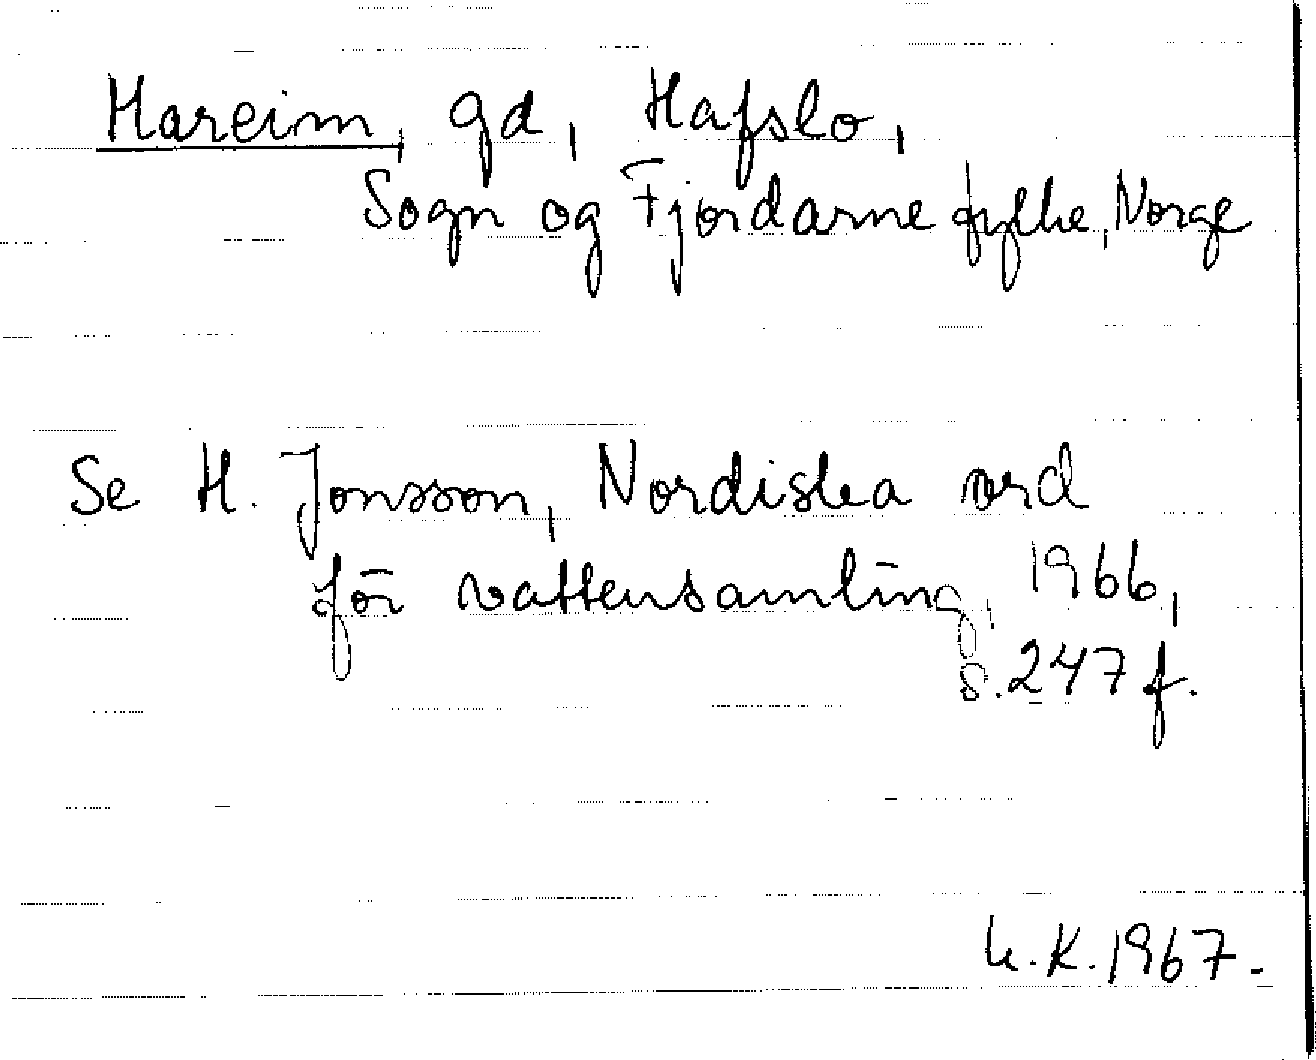 Hareim, gd, Hafslo,
Sogn og Fjordarne fylke, Norge
Se H. Jonsson, Nordiska ord
för vattensamling, 1966,
s. 247 f.
K. 1967.